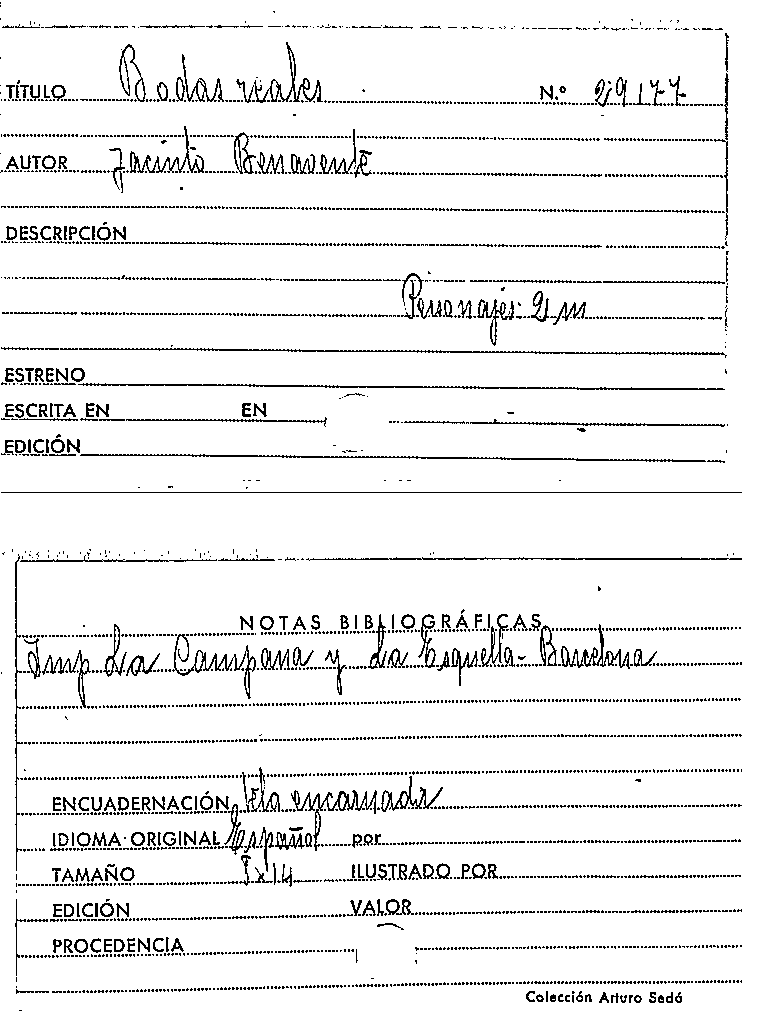 TÍTULO Bodas reales N.º 29177
AUTOR Jacinto Benavente
DESCRIPCIÓN
Personajes: 2 m
ESTRENO
ESCRITA EN EN
EDICIÓN
NOTAS BIBLIOGRÁFICAS
Imp La Campana y La Esquella - Barcelona
ENCUADERNACIÓN Tela encarnada
IDIOMA ORIGINAL Español por
TAMAÑO x14 ILUSTRADO POR
EDICIÓN VALOR
PROCEDENCIA
Colección Arturo Sedó